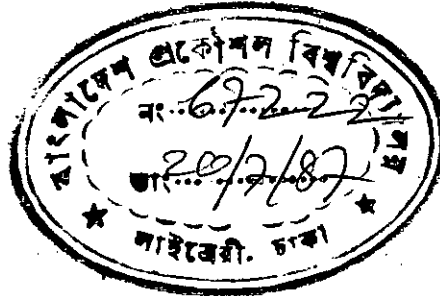 বাংলাদেশ প্রকৌশল বিশ্ববিদ্যালয়
নং..67222
তাং...20/7/87
লাইব্রেরী. ঢাকা